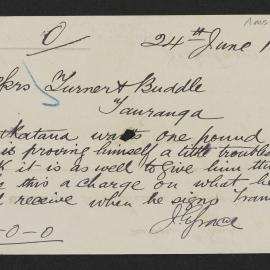 O
24th June 1
kers Turner & Buddle
Tauranga
katana wants one pound
is proving himself a little troubles
k it is as well to give him th
this a charge on what he
d receive when he signs Trans
J. Grace
-0-0